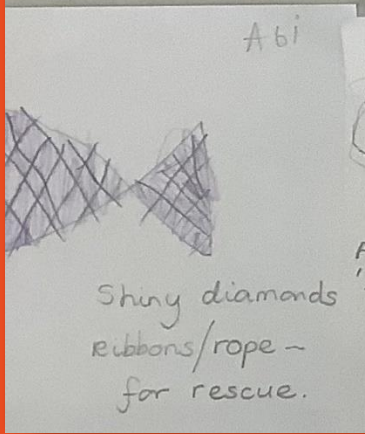 Abi
Shiny diamonds
Ribbons/rope –
for rescue.